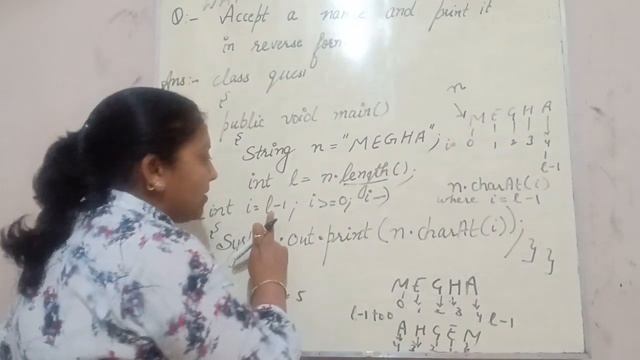 Q:- Accept a name and print it
in reverse form
Ans:- class ques1
{
public void main()
{
String n = "MEGHA";
int l = n.length();
int i = l-1; i>=0; i--)
{
System.out.print(n.charAt(i));
}}
n
MEGHA
i= 0 1 2 3 4
l-1
n.charAt(i)
where i = l-1
= 5
MEGHA
0 1 2 3 4 l-1
l-1 to 0
AHGEM
4 3 2 1 0